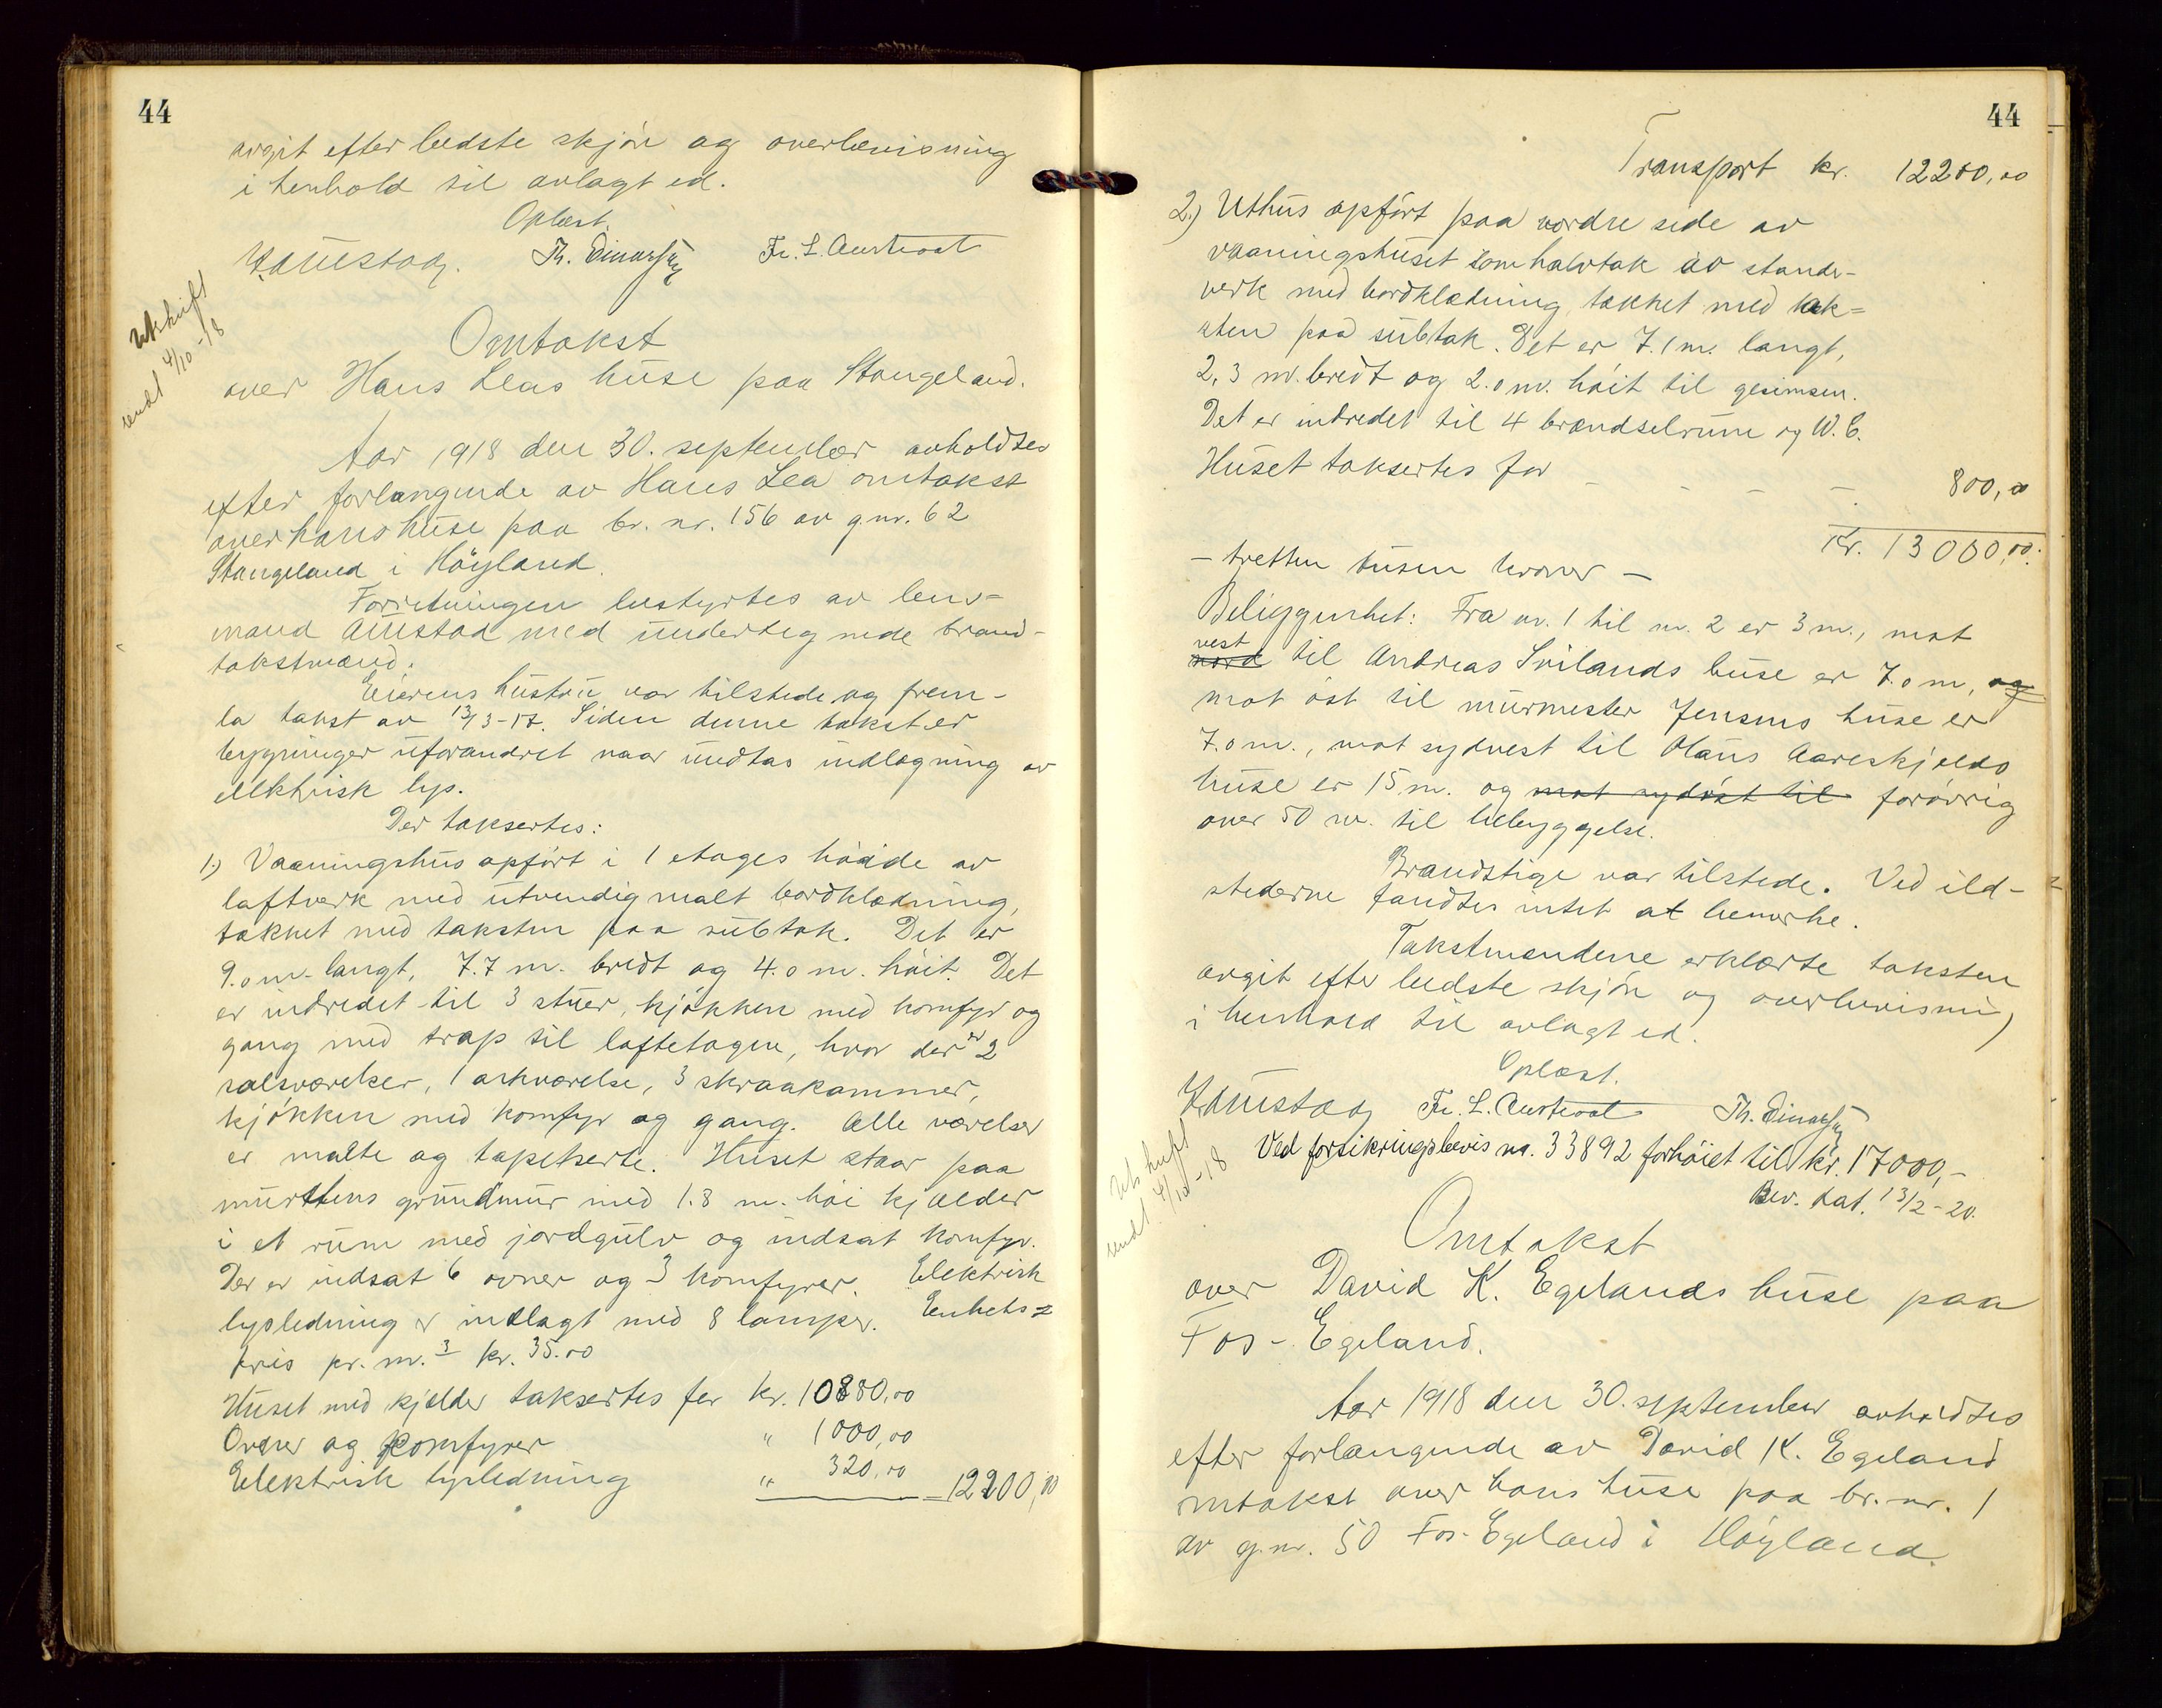 44
avgit efter bedste skjön og overbevisning
i henhold til avlagt ed.
Oplæst.
Th. Einarsen Fr. L. Austvoll
Utskrift
sendt 4/10-18
Omtakst
over Hans Leas huse paa Stangeland.
Aar 1918 den 30. september avholdtes
efter forlangende av Hans Lea omtakst
over hans huse paa br. nr. 156 av g.nr. 62
Stangeland i Höyland.
Forretningen bestyrtes av lens-
mand Austad med undertegnede brand-
takstmænd.
Eierens hustru var tilstede og frem-
la takst av 13/3-17. Siden denne takst er
bygninger uforandret naar undtas indlægning av
elektrisk lys.
Der taksertes:
1.) Vaaningshus opfört i 1 etages höide av
laftverk med utvendig malt bordklædning,
tækket med taksten paa subtak. Det er
9.0 m. langt, 7.7 m. bredt og 4.0 m. höit. Det
er indredet til 3 stuer, kjökken med komfyr og
gang med trap til loftetagen, hvor der er 2
salsværelser, 1 arkværelse, 3 skraakammer,
kjökken med komfyr og gang. Alle værelser
er malte og tapetserte. Huset staar paa
murstens grundmur med 1.8 m. höi kjælder
i et rum med jordgulv og indsat komfyr.
Der er indsat 6 ovner og 3 komfyrer. Elektrisk
lysledning er indlagt med 8 lamper. Enhets=
pris pr. m.3 kr. 35.00
Huset med kjælder taksertes for kr. 10880,00
Ovner og komfyrer " 1000,00
Elektrisk lysledning " 320,00
= 12200,00
44
Transport kr. 12200,00
2.) Uthus opfört paa nordre side av
vaaningshuset som halvtak av stander-
verk med bordklædning, tækket med tak=
sten paa subtak. Det er 7.1 m. langt,
2,3 m. bredt og 2.0 m. höit til gesimsen.
Det er indredet til 4 brændselrum og W.C.
Huset taksertes for - - - - 800,00
Kr. 13000,00.
- tretten tusen kroner -
Beliggenhet: Fra nr. 1 til nr. 2 er 3 m., mot
vest
nord til Andreas Svilands huse er 7.0 m, og
mot öst til murmester Jensens huse er
7.0 m., mot sydvest til Olaus Aareskjolds
huse er 15 m. og mot sydöst til forövrig
over 50 m. til bebyggelse.
Brandstige var tilstede. Ved ild-
stederne fandtes intet at bemerke.
Takstmændene erklærte taksten
avgit efter bedste skjön og overbevisning
i henhold til avlagt ed.
Oplæst.
Fr. L. Austvoll Th. Einarsen
Utskrift
sendt 4/10-18
Ved forsikringsbevis nr. 33892 forhöiet til kr. 17000,-
Bev. dat. 13/2-20.
Omtakst
over David K. Egelands huse paa
Fos-Egeland.
Aar 1918 den 30. september avholdtes
efter forlangende av David K. Egeland
omtakst over hans huse paa br. nr. 1
av g.nr. 50 Fos-Egeland i Höyland.